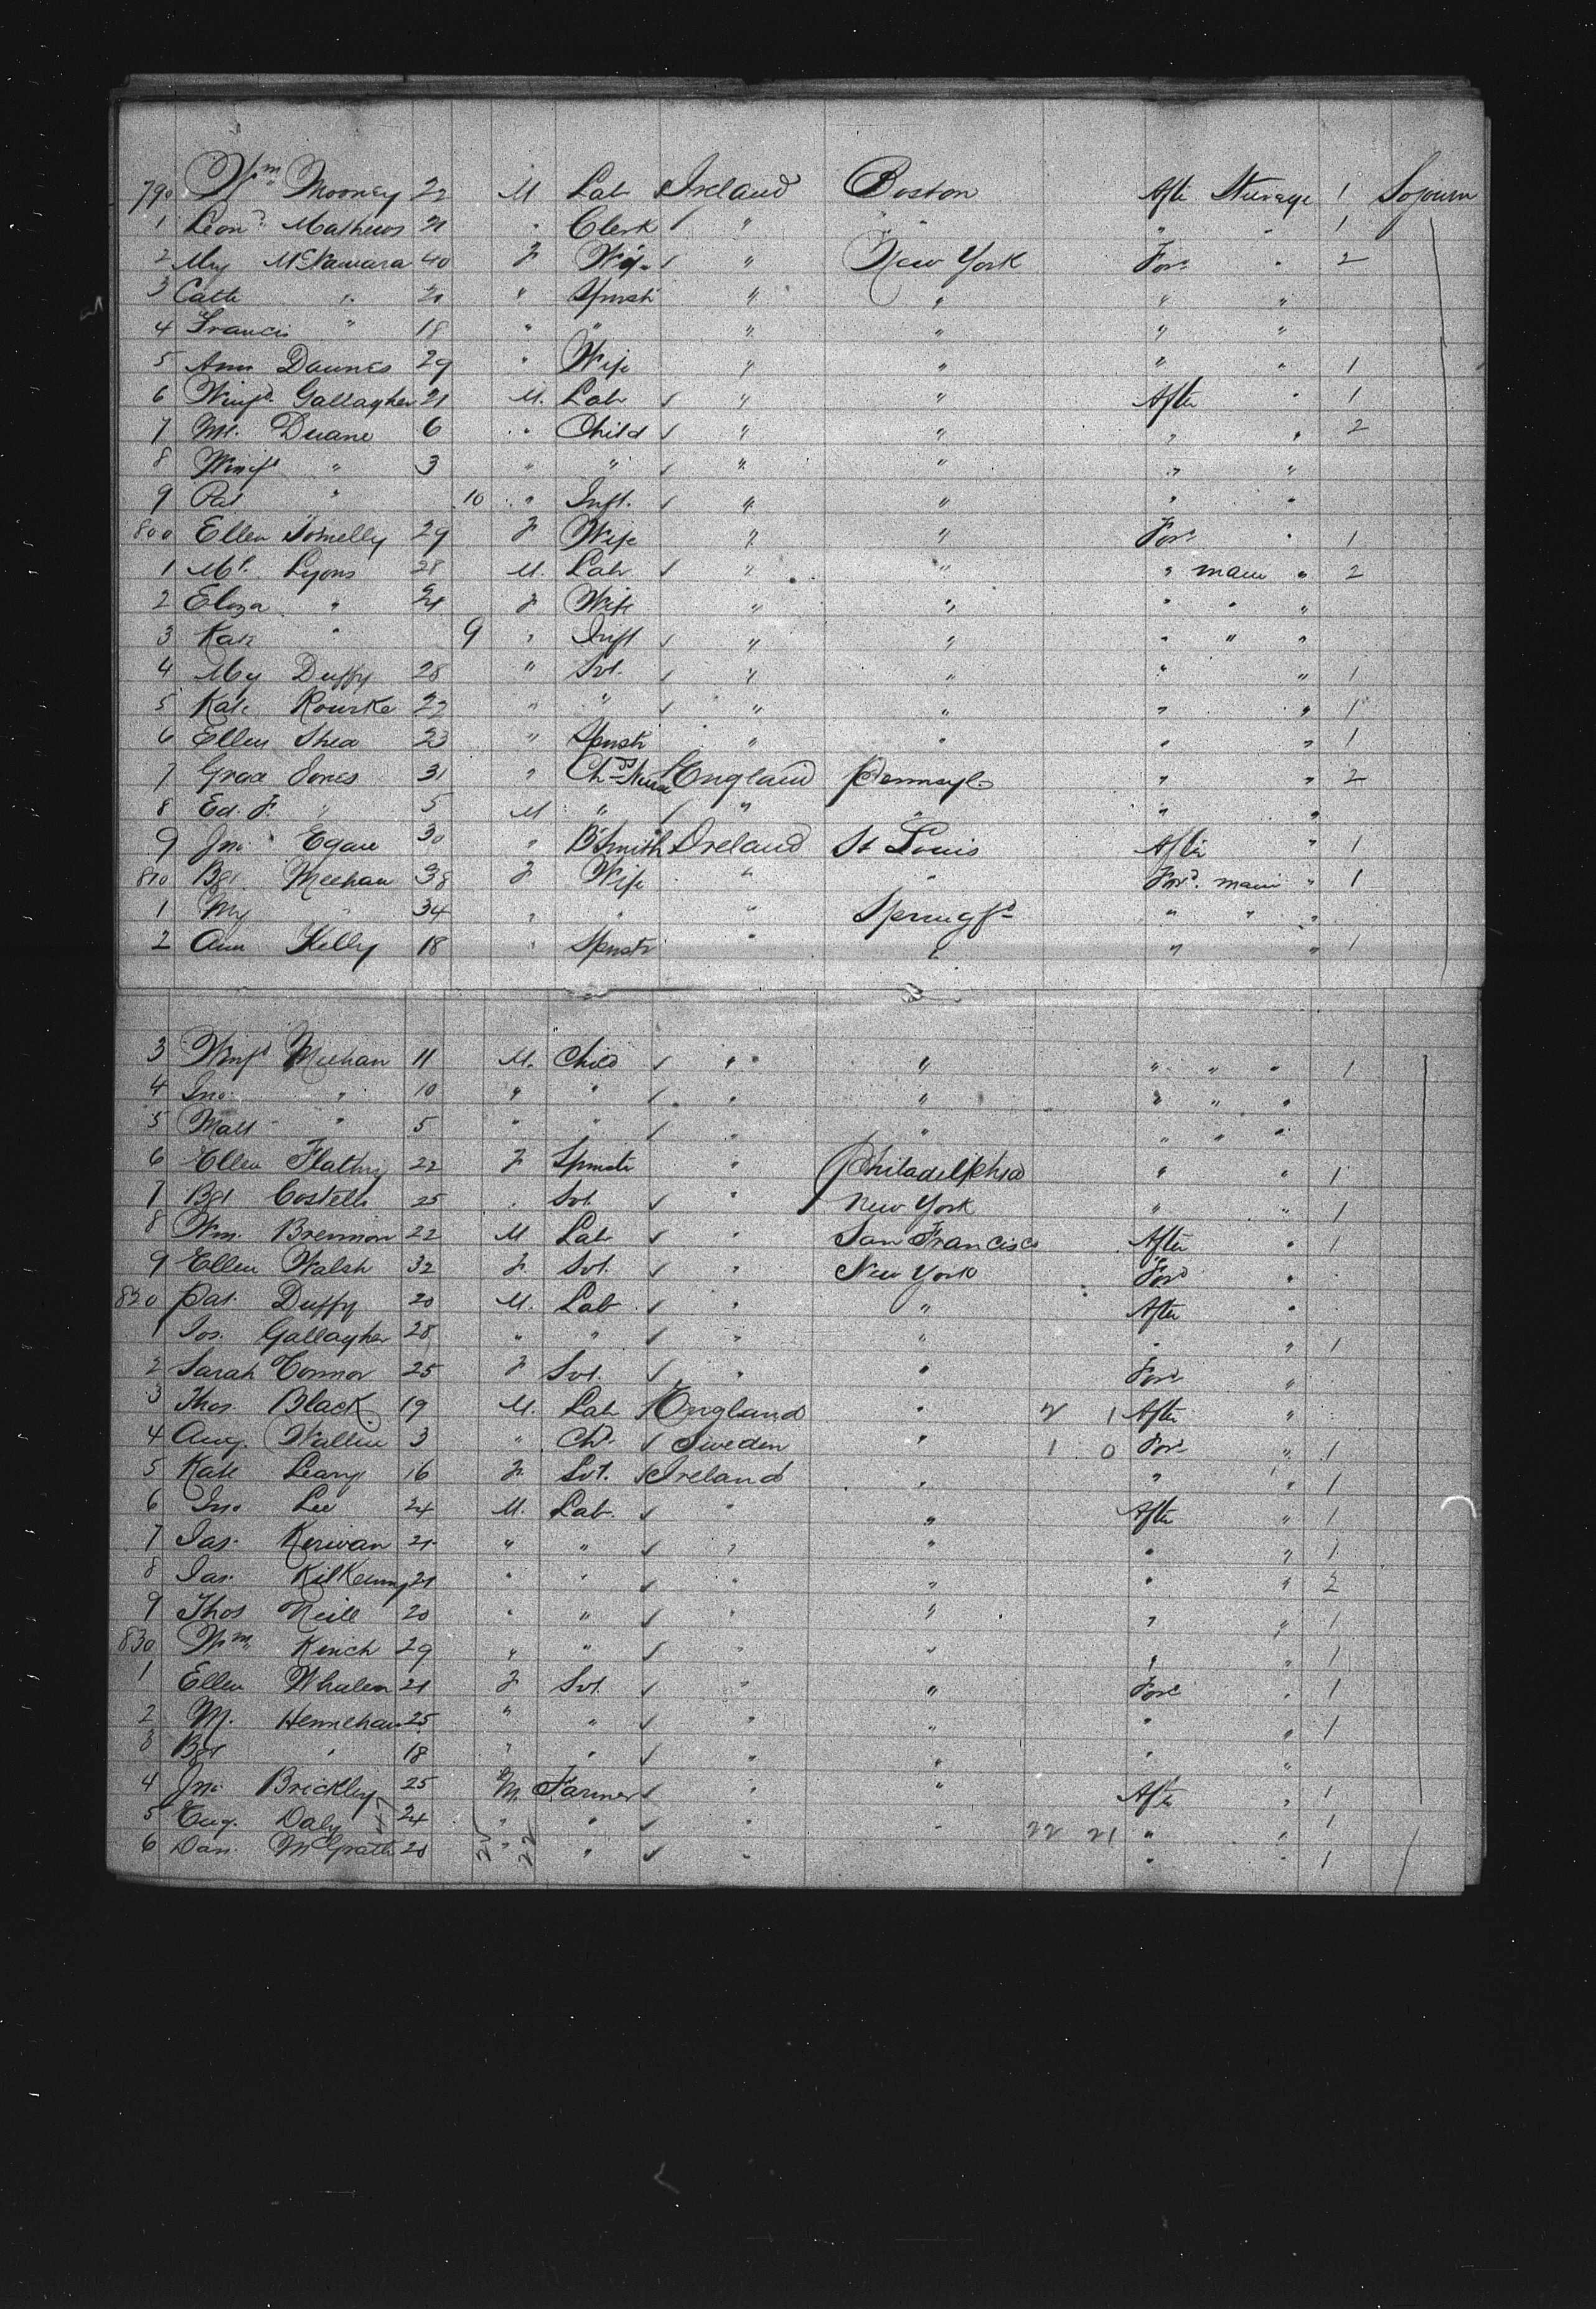 790 Wm Mooney 22 M Lab Ireland Boston Aftr Steerage 1 Sojourn
1 Leond Mathews 21 " Clerk " " " " 1
2 My McNamara 40 F Wife " New York Ford " 2
3 Cath " 21 " Spnstr " " " "
4 Francis " 18 " " " " " "
5 Ann Daunes 29 " Wife " " " " 1
6 Winfd Gallagher 21 M. Lab " " After " 1
7 Ml. Duane 6 " Child " " " " 2
8 Winfd " 3 " " " " " "
9 Pat " 10 " Inft. " " " "
800 Ellen Donnelly 29 F Wife " " Ford " 1
1 Ml. Lyons 28 M. Lab " " " main " 2
2 Eliza " 24 F Wife " " " " "
3 Kate " 9 " Inft " " " " "
4 My Duffy 28 " Svt. " " " " 1
5 Kate Rourke 22 " " " " " " 1
6 Ellen Shea 23 " Spnstr " " " " 1
7 Grace Jones 31 " Chds Nurse England Pennsyl. " " 2
8 Ed. F. " 5 M " " " " "
9 Jno Egan 30 " B'Smith Ireland St Louis After " 1
810 Bgt Meehan 38 F Wife " " Ford. main " 1
1 My " 34 " " " Springfd " " "
2 Ann Kelly 18 " Spnstr " " " " 1
3 Winfd Meehan 11 M. Child " " " " " 1
4 Jno " 10 " " " " " " "
5 Matt " 5 " " " " " " "
6 Ellen Flathry 22 F Spnstr " Philadelphia " " 1
7 Bgt Costello 25 " Svt. " New York " " 1
8 Wm. Brennon 22 M Lab " San Francisco After " 1
9 Ellen Walsh 32 F. Svt. " New York Ford "
820 Pat. Duffy 20 M. Lab " " After "
1 Jos. Gallagher 28 " " " " " " 1
2 Sarah Connor 25 F Svt. " " Ford "
3 Thos. Black 19 M. Lab England " 2 1 After "
4 Aug. Wallin 3 " Chd. Sweden " 1 0 Ford " 1
5 Kate Leary 16 F Svt. Ireland " " " 1
6 Jno Lee 24 M. Lab. " " After " 1
7 Jas. Kerwan 21 " " " " " " 1
8 Jas. Kilkenny 21 " " " " " " 2
9 Thos Neill 20 " " " " " " 1
830 Wm Kinch 29 " " " " " " 1
1 Ellen Whalen 21 F Svt. " " Ford " 1
2 M. Hennehan 25 " " " " " " 1
3 Bgt " 18 " " " " " "
4 Jno Brickley 25 M Farmer " " After " 1
5 Eug. Daly 24 " " " " 22 21 " " 1
6 Dan. McGrath 20 " " " " " " 1